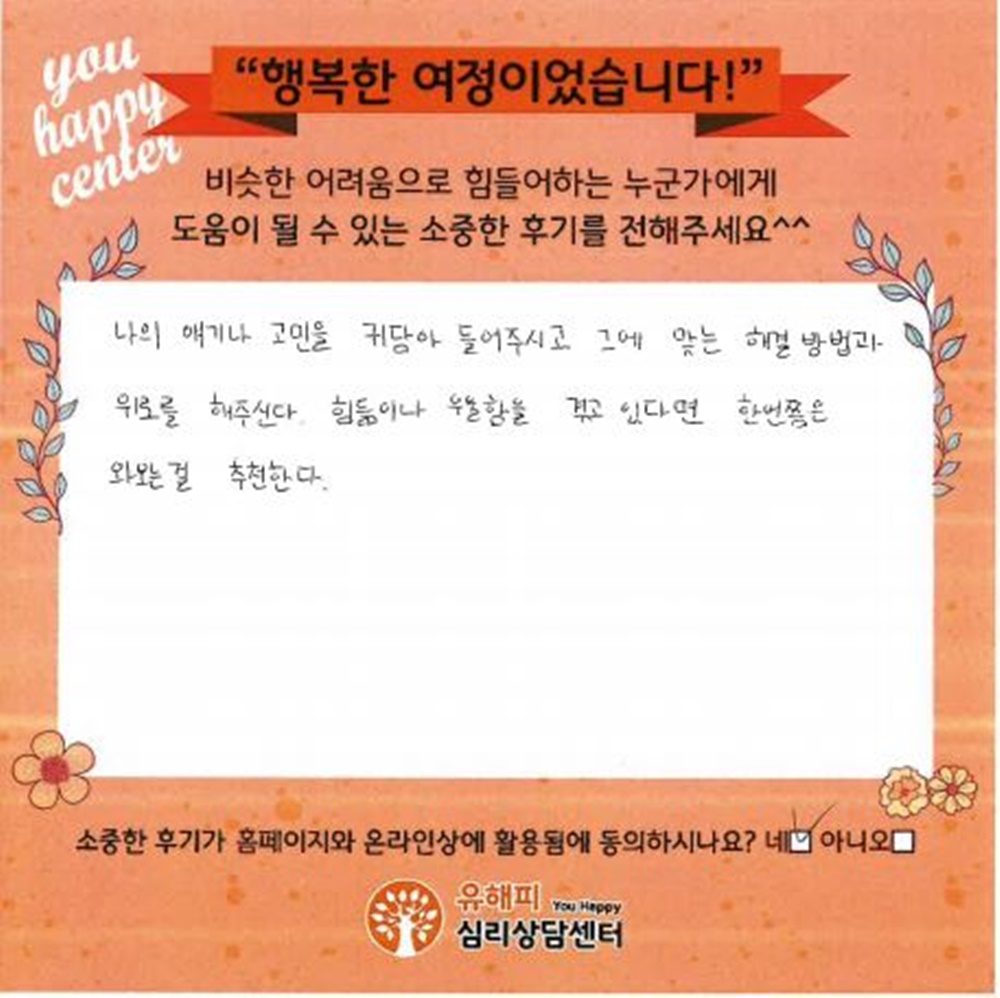 you
happy
center
“행복한 여정이었습니다!”
비슷한 어려움으로 힘들어하는 누군가에게
도움이 될 수 있는 소중한 후기를 전해주세요^^
나의 얘기나 고민을 귀담아 들어주시고 그에 맞는 해결 방법과
위로를 해주신다. 힘듦이나 우울함을 겪고 있다면 한번쯤은
와보는걸 추천한다.
소중한 후기가 홈페이지와 온라인상에 활용됨에 동의하시나요? 네 아니오
유해피 You Happy
심리상담센터